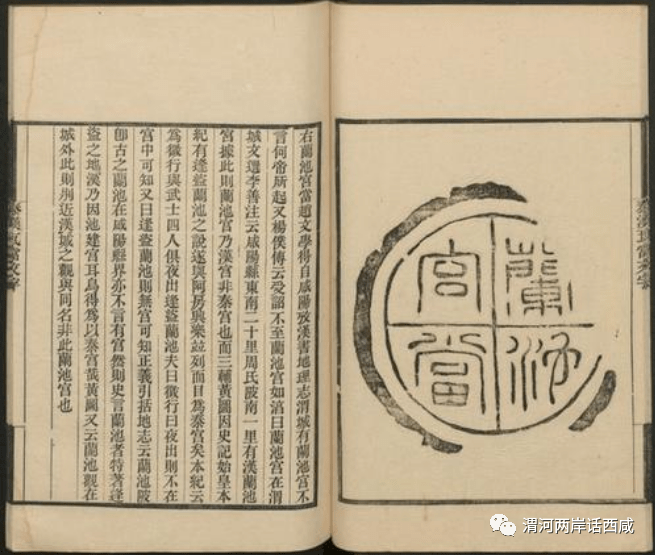 蘭池
宮當
右蘭池宮當趙文學得自咸陽攷漢書地理志渭城有蘭池宮不
言何帝所起又楊僕傳云受詔不至蘭池宮如湻曰蘭池宮在渭
城文選李善注云咸陽縣東南二十里周氏陂南一里有漢蘭池
宮據此則蘭池宮乃漢宮非秦宮也而三輔黃圖因史記始皇本
紀有逢盜蘭池之說遂與阿房興樂並列而目爲秦宮矣本紀云
爲微行與武士四人俱夜出逢盜蘭池夫曰微行曰夜出則不在
宮中可知又曰逢盜蘭池則無宮可知正義引括地志云蘭池陂
卽古之蘭池在咸陽縣界亦不言有宮然則史言蘭池者特著逢
盜之地漢乃因池建宮耳烏得爲以秦宮哉黃圖又云蘭池觀在
城外此則別近漢城之觀與同名非此蘭池宮也
渭河两岸话西咸